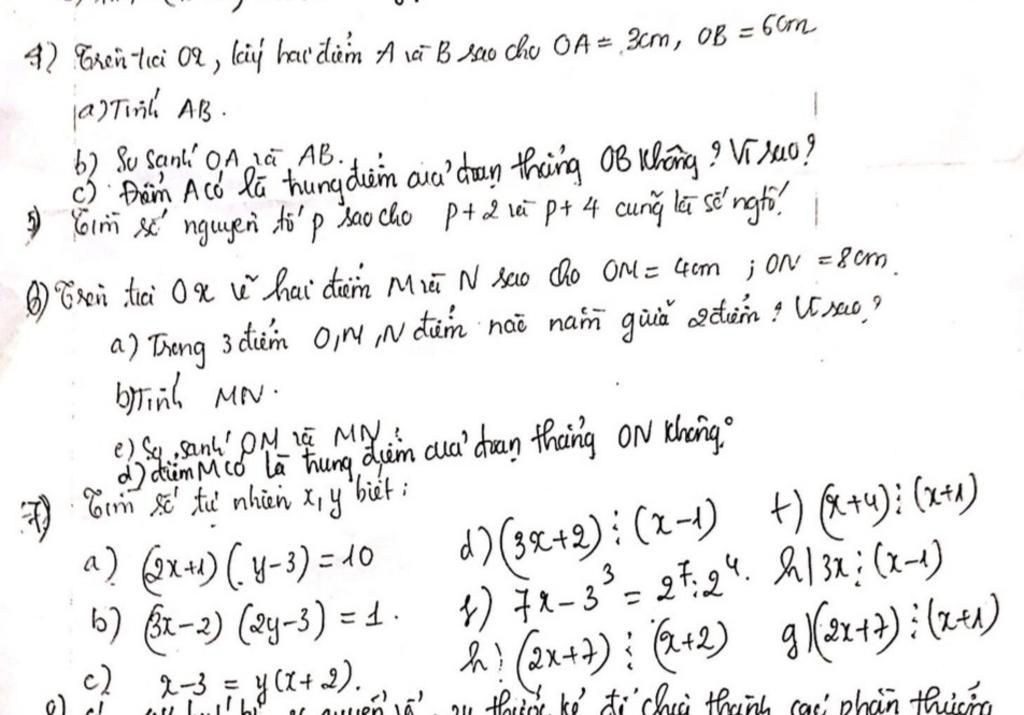 4) Trên tia Ox, lấy hai điểm A và B sao cho OA = 3cm, OB = 6cm
a) Tính AB.
b) So sánh OA và AB.
c) Điểm A có là trung điểm của đoạn thẳng OB không? Vì sao?
5) Tìm số nguyên tố p sao cho p+2 và p+4 cũng là số ngtố.
6) Trên tia Ox vẽ hai điểm M và N sao cho OM = 4cm ; ON = 8cm.
a) Trong 3 điểm O, M, N điểm nào nằm giữa 2 điểm ? Vì sao?
b) Tính MN.
c) So sánh OM và MN.
d) điểm M có là trung điểm của đoạn thẳng ON không?
7) Tìm số tự nhiên x, y biết :
a) (2x+1)(y-3) = 10
d) (3x+2) ⋮ (x-1)
t) (x+4) ⋮ (x+1)
b) (3x-2)(2y-3) = 1.
f) 7x - 3³ = 2⁷ : 2⁴.
h) 3x ⋮ (x-1)
c) x-3 = y(x+2).
h) (2x+7) ⋮ (x+2)
g) (2x+7) ⋮ (x+1)
để chia thành các phần thưởng